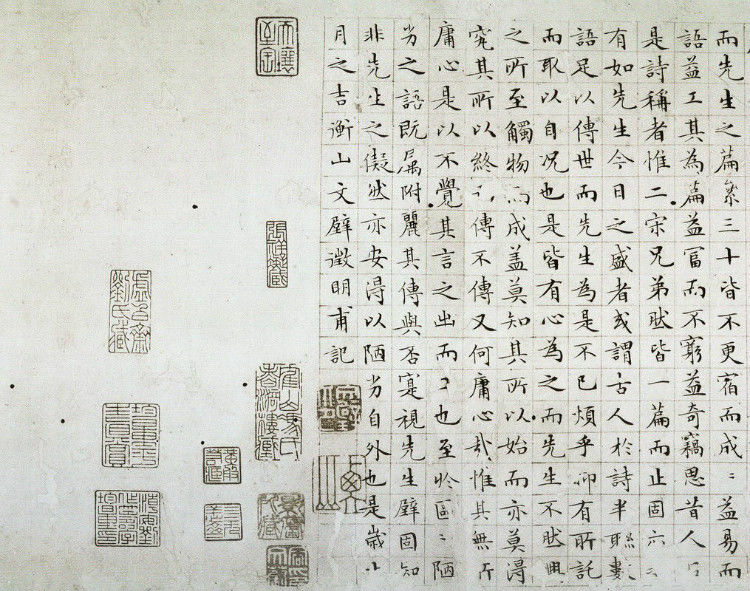 而先生之篇累三十皆不更宿而成〻益易而
語益工其為篇益富而不窮益奇竊思昔人
是詩稱者惟二宋兄弟然皆一篇而止固
有如先生今日之盛者或謂古人於詩半聯數
語足以傳世而先生為是不已煩乎抑有所託
而取以自况也是皆有心為之而先生不然興
之所至觸物而成盖莫知其所以始而亦莫得
究其所以終而傳不傳又何庸心哉惟其無所
庸心是以不覺其言之出而工也至於區〻陋
劣之語既属附麗其傳與否寔視先生壁固知
非先生之儗然亦安得以陋劣自外也是歲十
月之吉衡山文壁徵明甫記
虛白齋劉氏藏